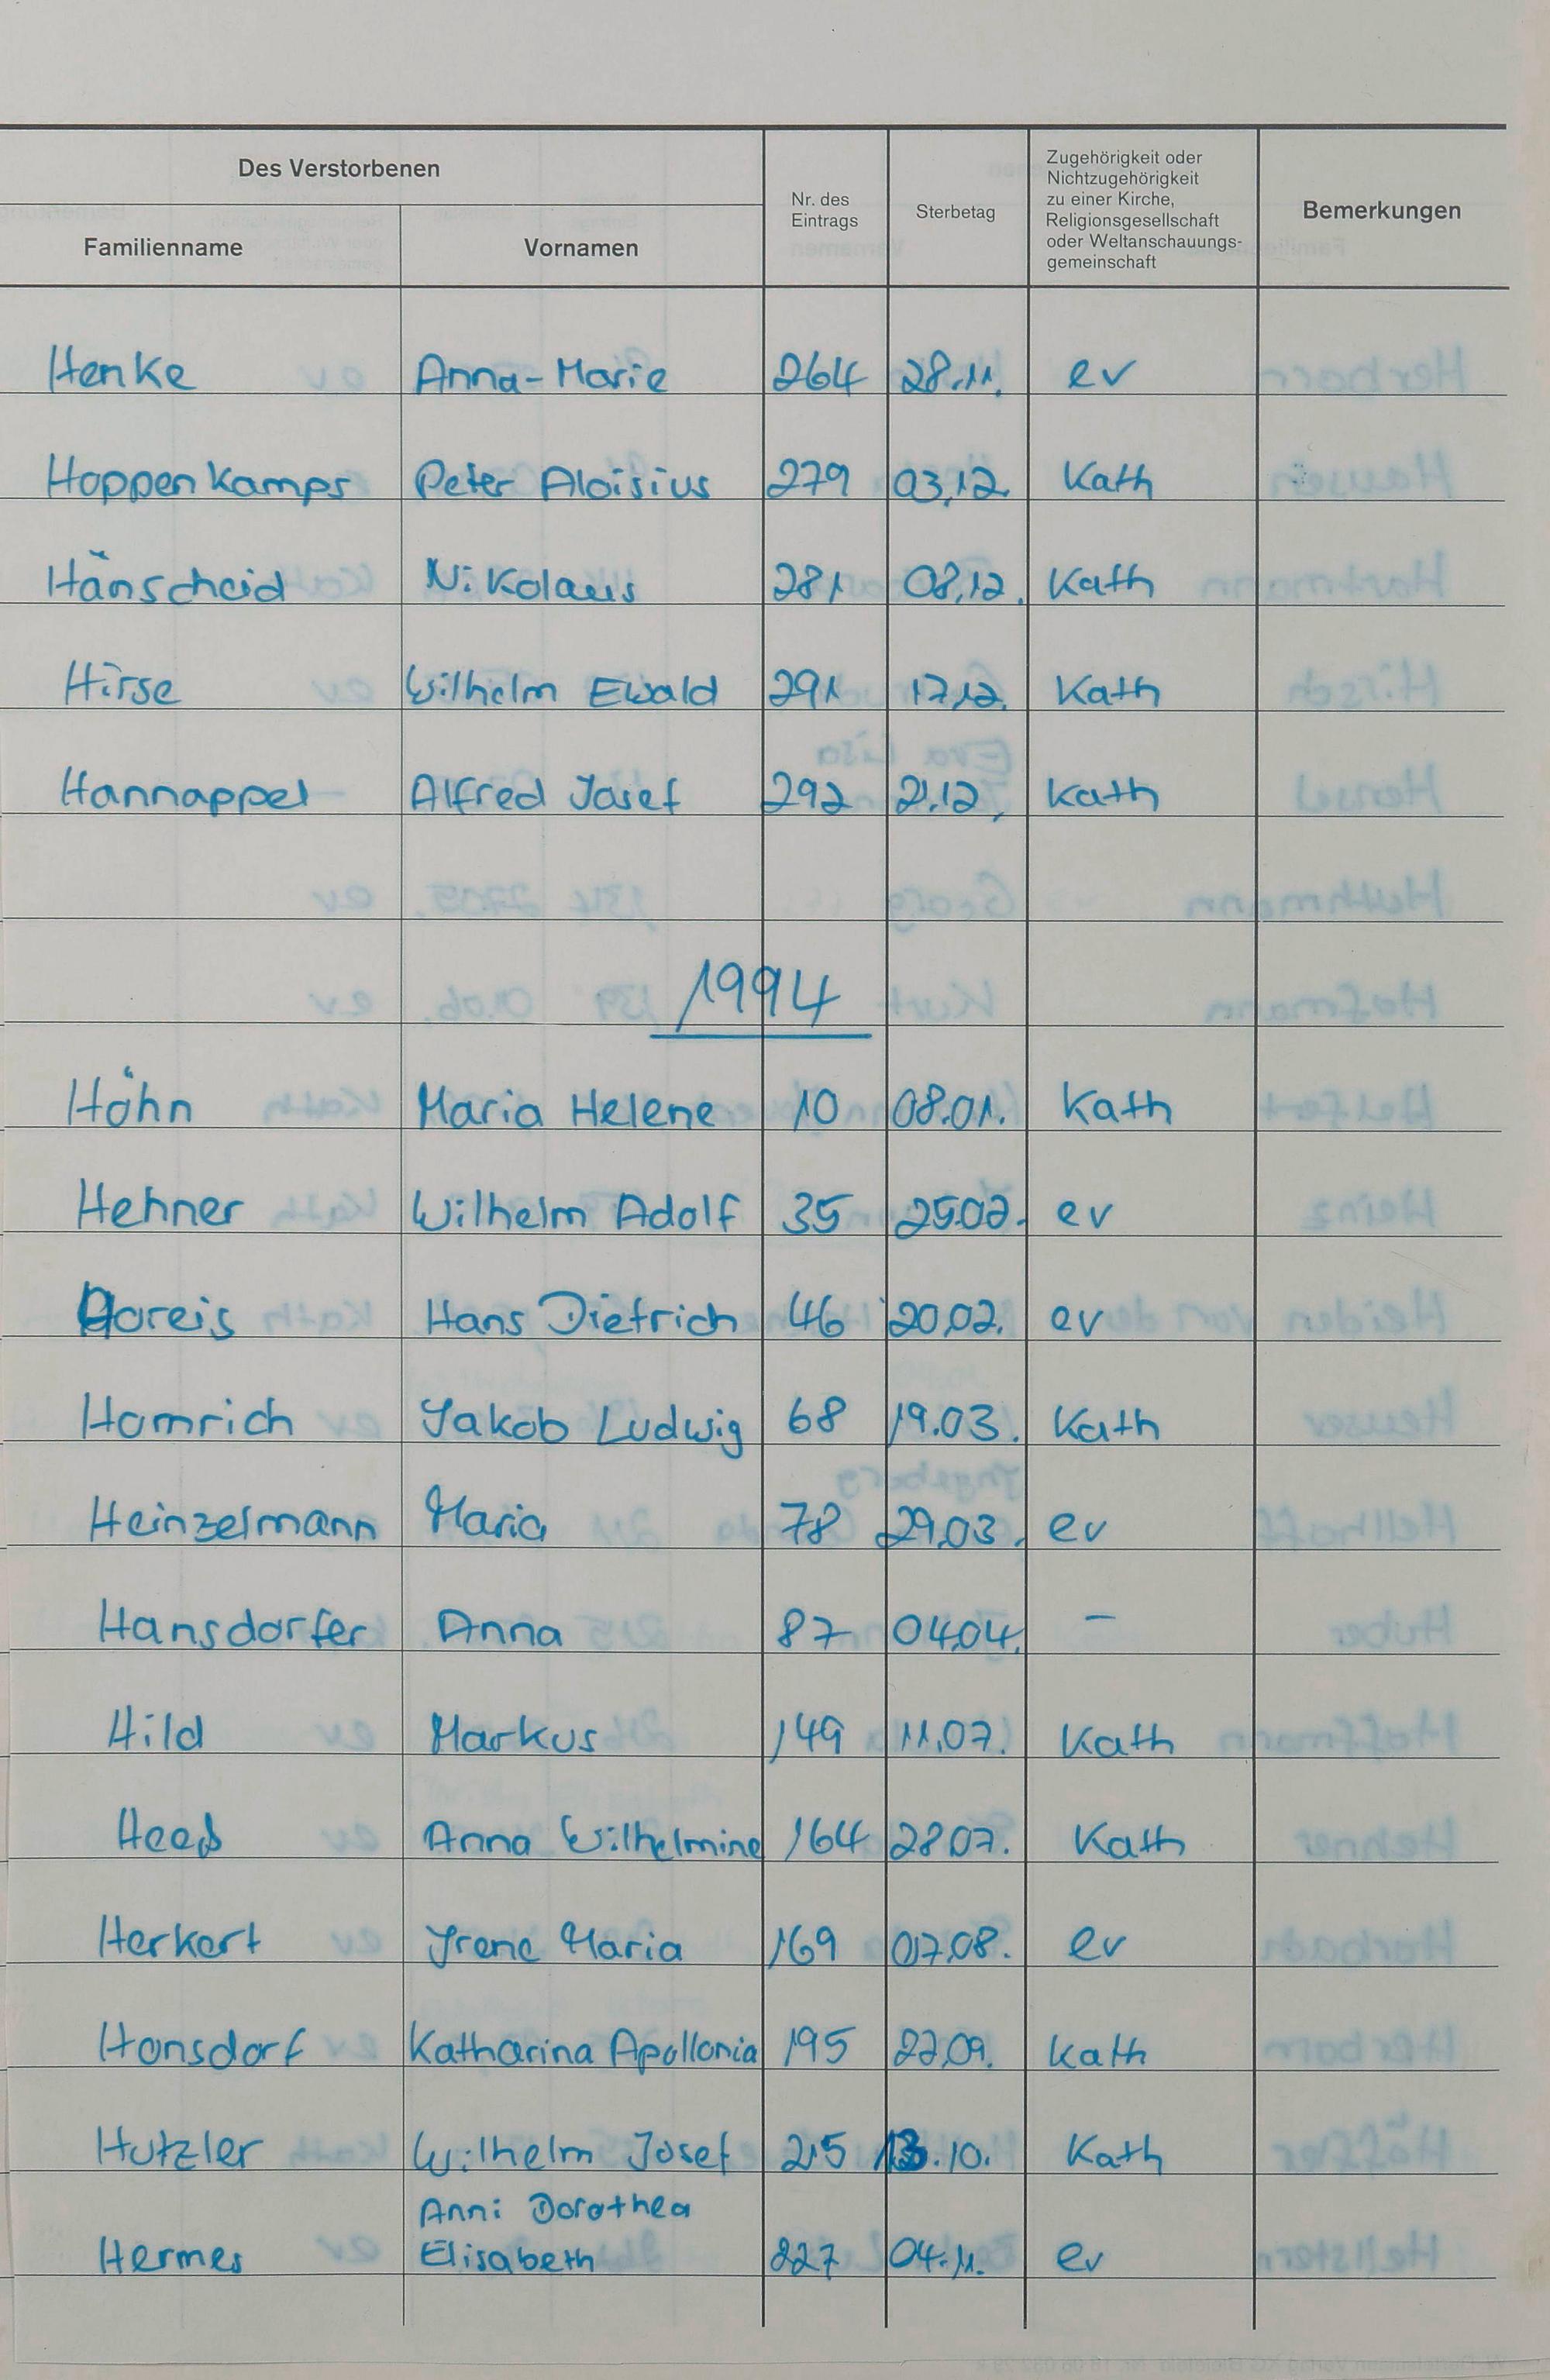 Des Verstorbenen
Familienname
Vornamen
Nr. des
Eintrags
Sterbetag
Zugehörigkeit oder
Nichtzugehörigkeit
zu einer Kirche,
Religionsgesellschaft
oder Weltanschauungs-
gemeinschaft
Bemerkungen
Henke Anna-Marie 264 28.11. ev
Hoppenkamps Peter Aloisius 279 03.12. Kath
Hänscheid Nikolaus 281 08.12. Kath
Hirse Wilhelm Ewald 291 17.12. Kath
Hannappel Alfred Josef 292 21.12. Kath
1994
Höhn Maria Helene 10 08.01. Kath
Hehner Wilhelm Adolf 35 25.02. ev
Hans Dietrich 46 20.02. ev
Homrich Jakob Ludwig 68 19.03. Kath
Heinzelmann Maria 78 29.03. ev
Hansdorfer Anna 87 04.04. -
Hild Markus 149 11.07. Kath
Anna Wilhelmine 164 28.07. Kath
Herkert Irene Maria 169 07.08. ev
Honsdorf Katharina Apollonia 195 22.09. Kath
Hutzler Wilhelm Josef 215 13.10. Kath
Anni Dorothea
Hermes Elisabeth 227 04.11. ev